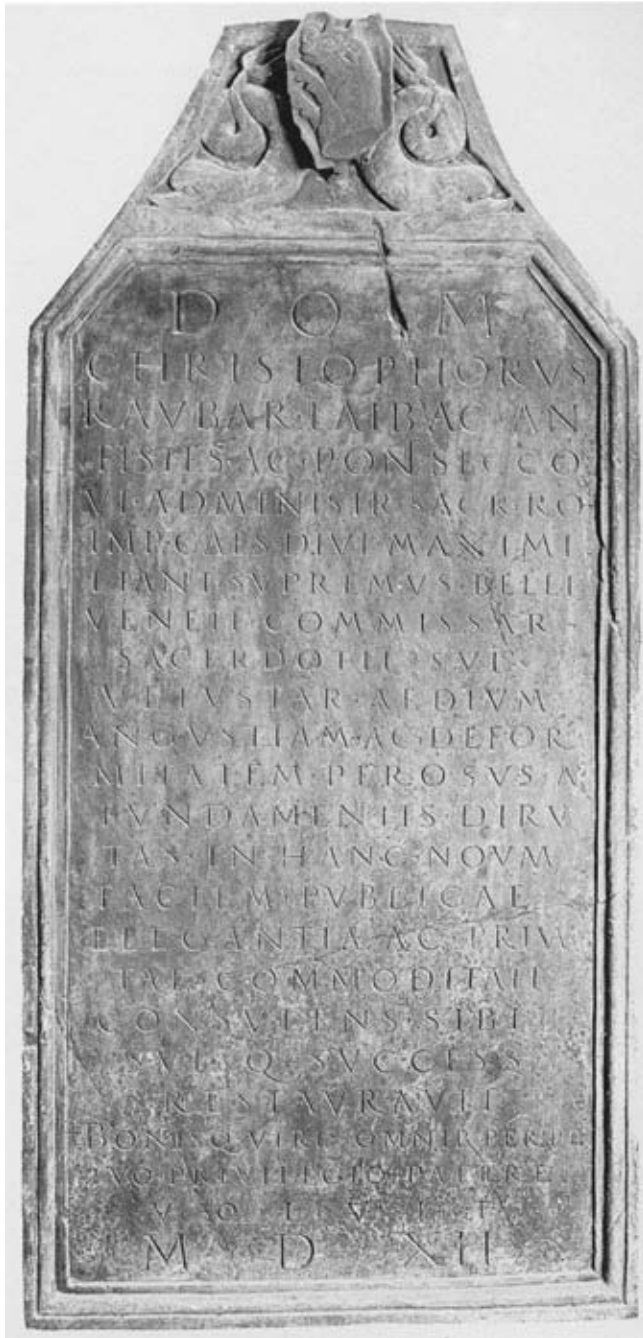 D O M
CHRISTOPHORVS
RAVBAR·LAIBAC·AN
TISTES·AC·PON·SECCO
VI·ADMINISTR·SACR·RO
IMP·CAES·DIVI·MAXIMI
LIANI·SVPREMVS·BELLI
VENETI·COMMISSAR·
SACERDOTII·SVI·
VETVSTAR·AEDIVM
ANGVSTIAM·AC·DEFOR
MITATEM·PEROSVS·A
FVNDAMENTIS·DIRV
TAS·IN·HANC·NOVM
FACIEM·PVBLICAE
ELEGANTIA·AC·PRIVA
TAE·COMMODITATI
CONSVLENS·SIBI
SVISQ·SVCCESS
RESTAVRAVIT
BONISQ·VIRIS·OMNIB·PERPE
TVO·PRIVILEGIO·PATERE
VOLVIT
M D XII